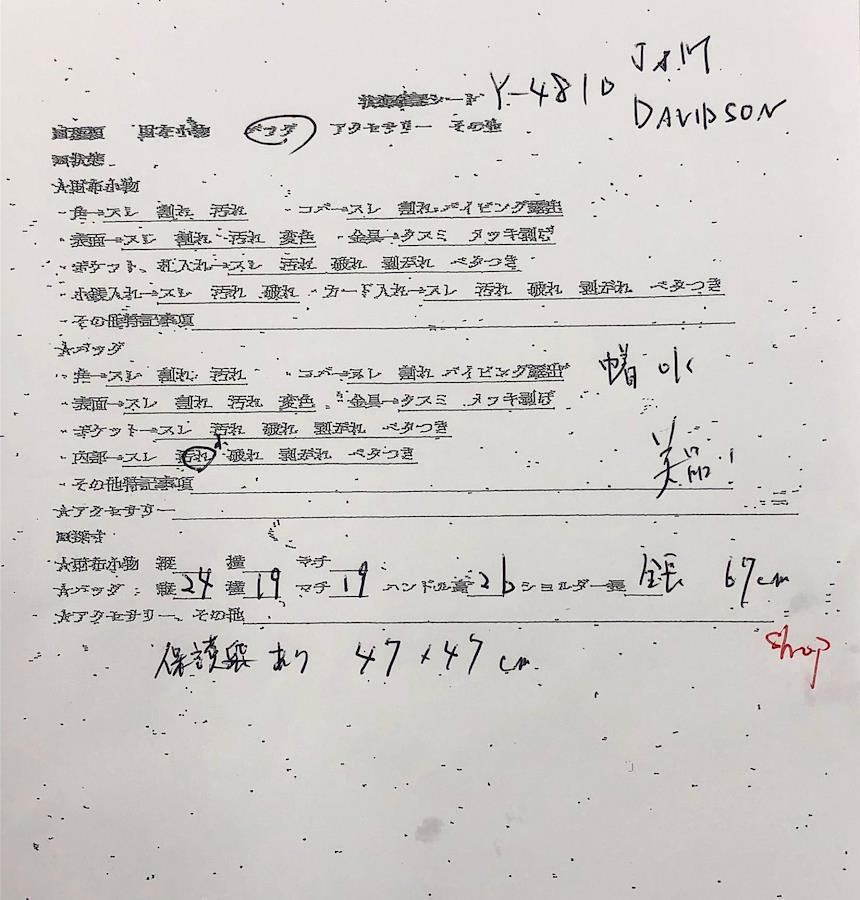 J&M
DAVIDSON
状態確認シート Y-4810
財布小物 バッグ アクセサリー その他
状態
☆財布小物
・角→スレ 割れ 汚れ ・コバ→スレ 割れ パイピング露出
・表面→スレ 割れ 汚れ 変色 ・金具→クスミ メッキ剥げ
・ポケット、札入れ→スレ 汚れ 破れ 剥がれ ベタつき
・小銭入れ→スレ 汚れ 破れ ・カード入れ→スレ 汚れ 破れ 剥がれ ベタつき
・その他特記事項
☆バッグ
・角→スレ 割れ 汚れ ・コバ→スレ 割れ パイピング露出
・表面→スレ 割れ 汚れ 変色 ・金具→クスミ メッキ剥げ
・ポケット→スレ 汚れ 破れ 剥がれ ベタつき
小
・内部→スレ 汚れ 破れ 剥がれ ベタつき
美品!
・その他特記事項
☆アクセサリー
採寸
☆財布小物 縦 横 マチ
☆バッグ:縦 24 横 19 マチ 19 ハンドル高 26 ショルダー長 全長 67cm
☆アクセサリー、その他
shop
保護袋 あり 47×47cm